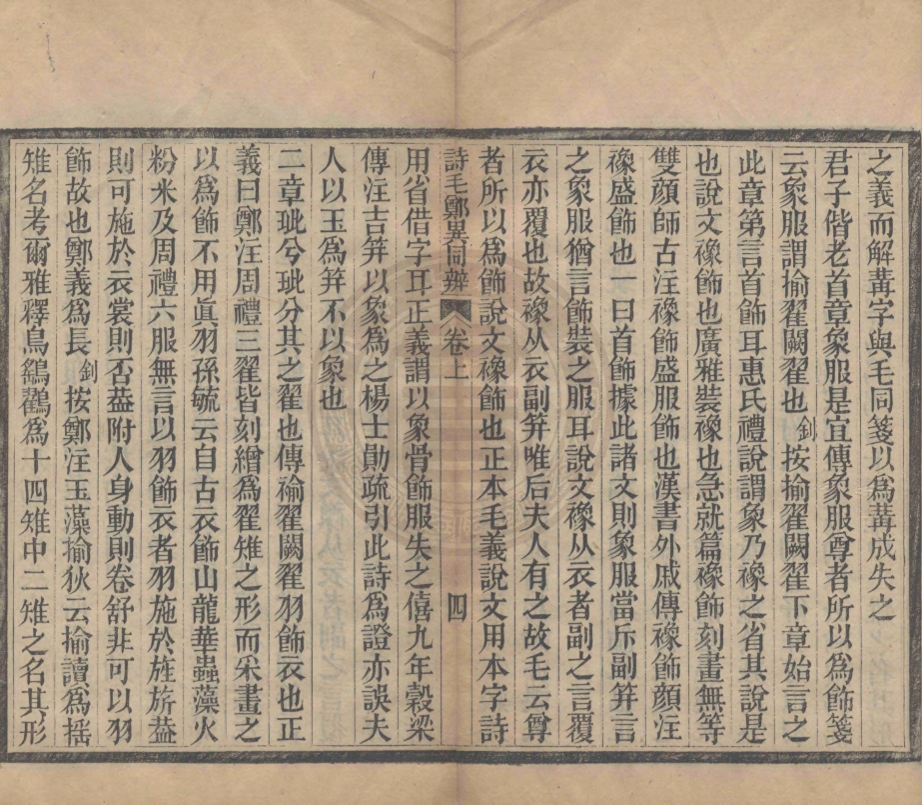 之義而解冓字與毛同箋以為冓成失之
君子偕老首章象服是宜傳象服尊者所以為飾箋
云象服謂揄翟闕翟也釗按揄翟闕翟下章始言之
此章第言首飾耳惠氏禮說謂象乃襐之省其說是
也說文襐飾也廣雅裝襐也急就篇襐飾刻畫無等
雙顏師古注襐飾盛服飾也漢書外戚傳襐飾顏注
襐盛飾也一曰首飾據此諸文則象服當斥副笄言
之象服猶言飾裝之服耳說文襐从衣者副之言覆
衣亦覆也故襐从衣副笄唯后夫人有之故毛云尊
者所以為飾說文襐飾也正本毛義說文用本字詩
詩毛鄭異同辨 卷上 四
用省借字耳正義謂以象骨飾服失之僖九年穀梁
傳注吉笄以象為之楊士勛疏引此詩為證亦誤夫
人以玉為笄不以象也
二章玼兮玼兮其之翟也傳褕翟闕翟羽飾衣也正
義曰鄭注周禮三翟皆刻繒為翟雉之形而采畫之
以為飾不用真羽孫毓云自古衣飾山龍華蟲藻火
粉米及周禮六服無言以羽飾衣者羽施於旌旂葢
則可施於衣裳則否葢附人身動則卷舒非可以羽
飾故也鄭義為長釗按鄭注玉藻揄狄云揄讀為摇
雉名考爾雅釋鳥鷂鸛為十四雉中二雉之名其形